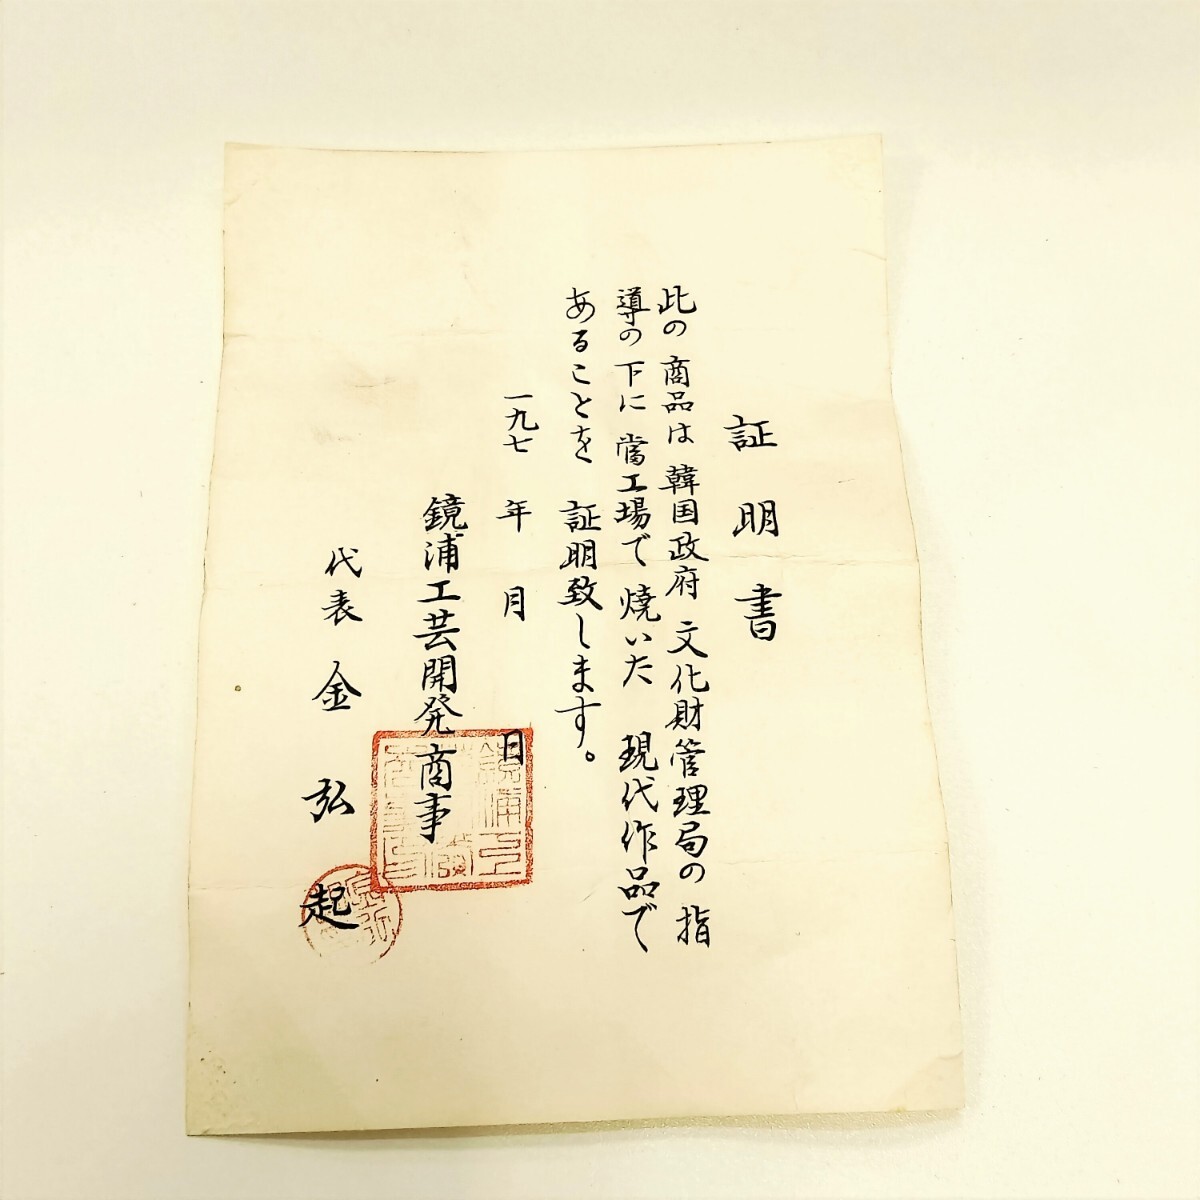 証明書
此の商品は韓国政府文化財管理局の指
導の下に當工場で焼いた現代作品で
あることを証明致します。
一九七 年 月 日
鏡浦工芸開発商事
代表 金弘起